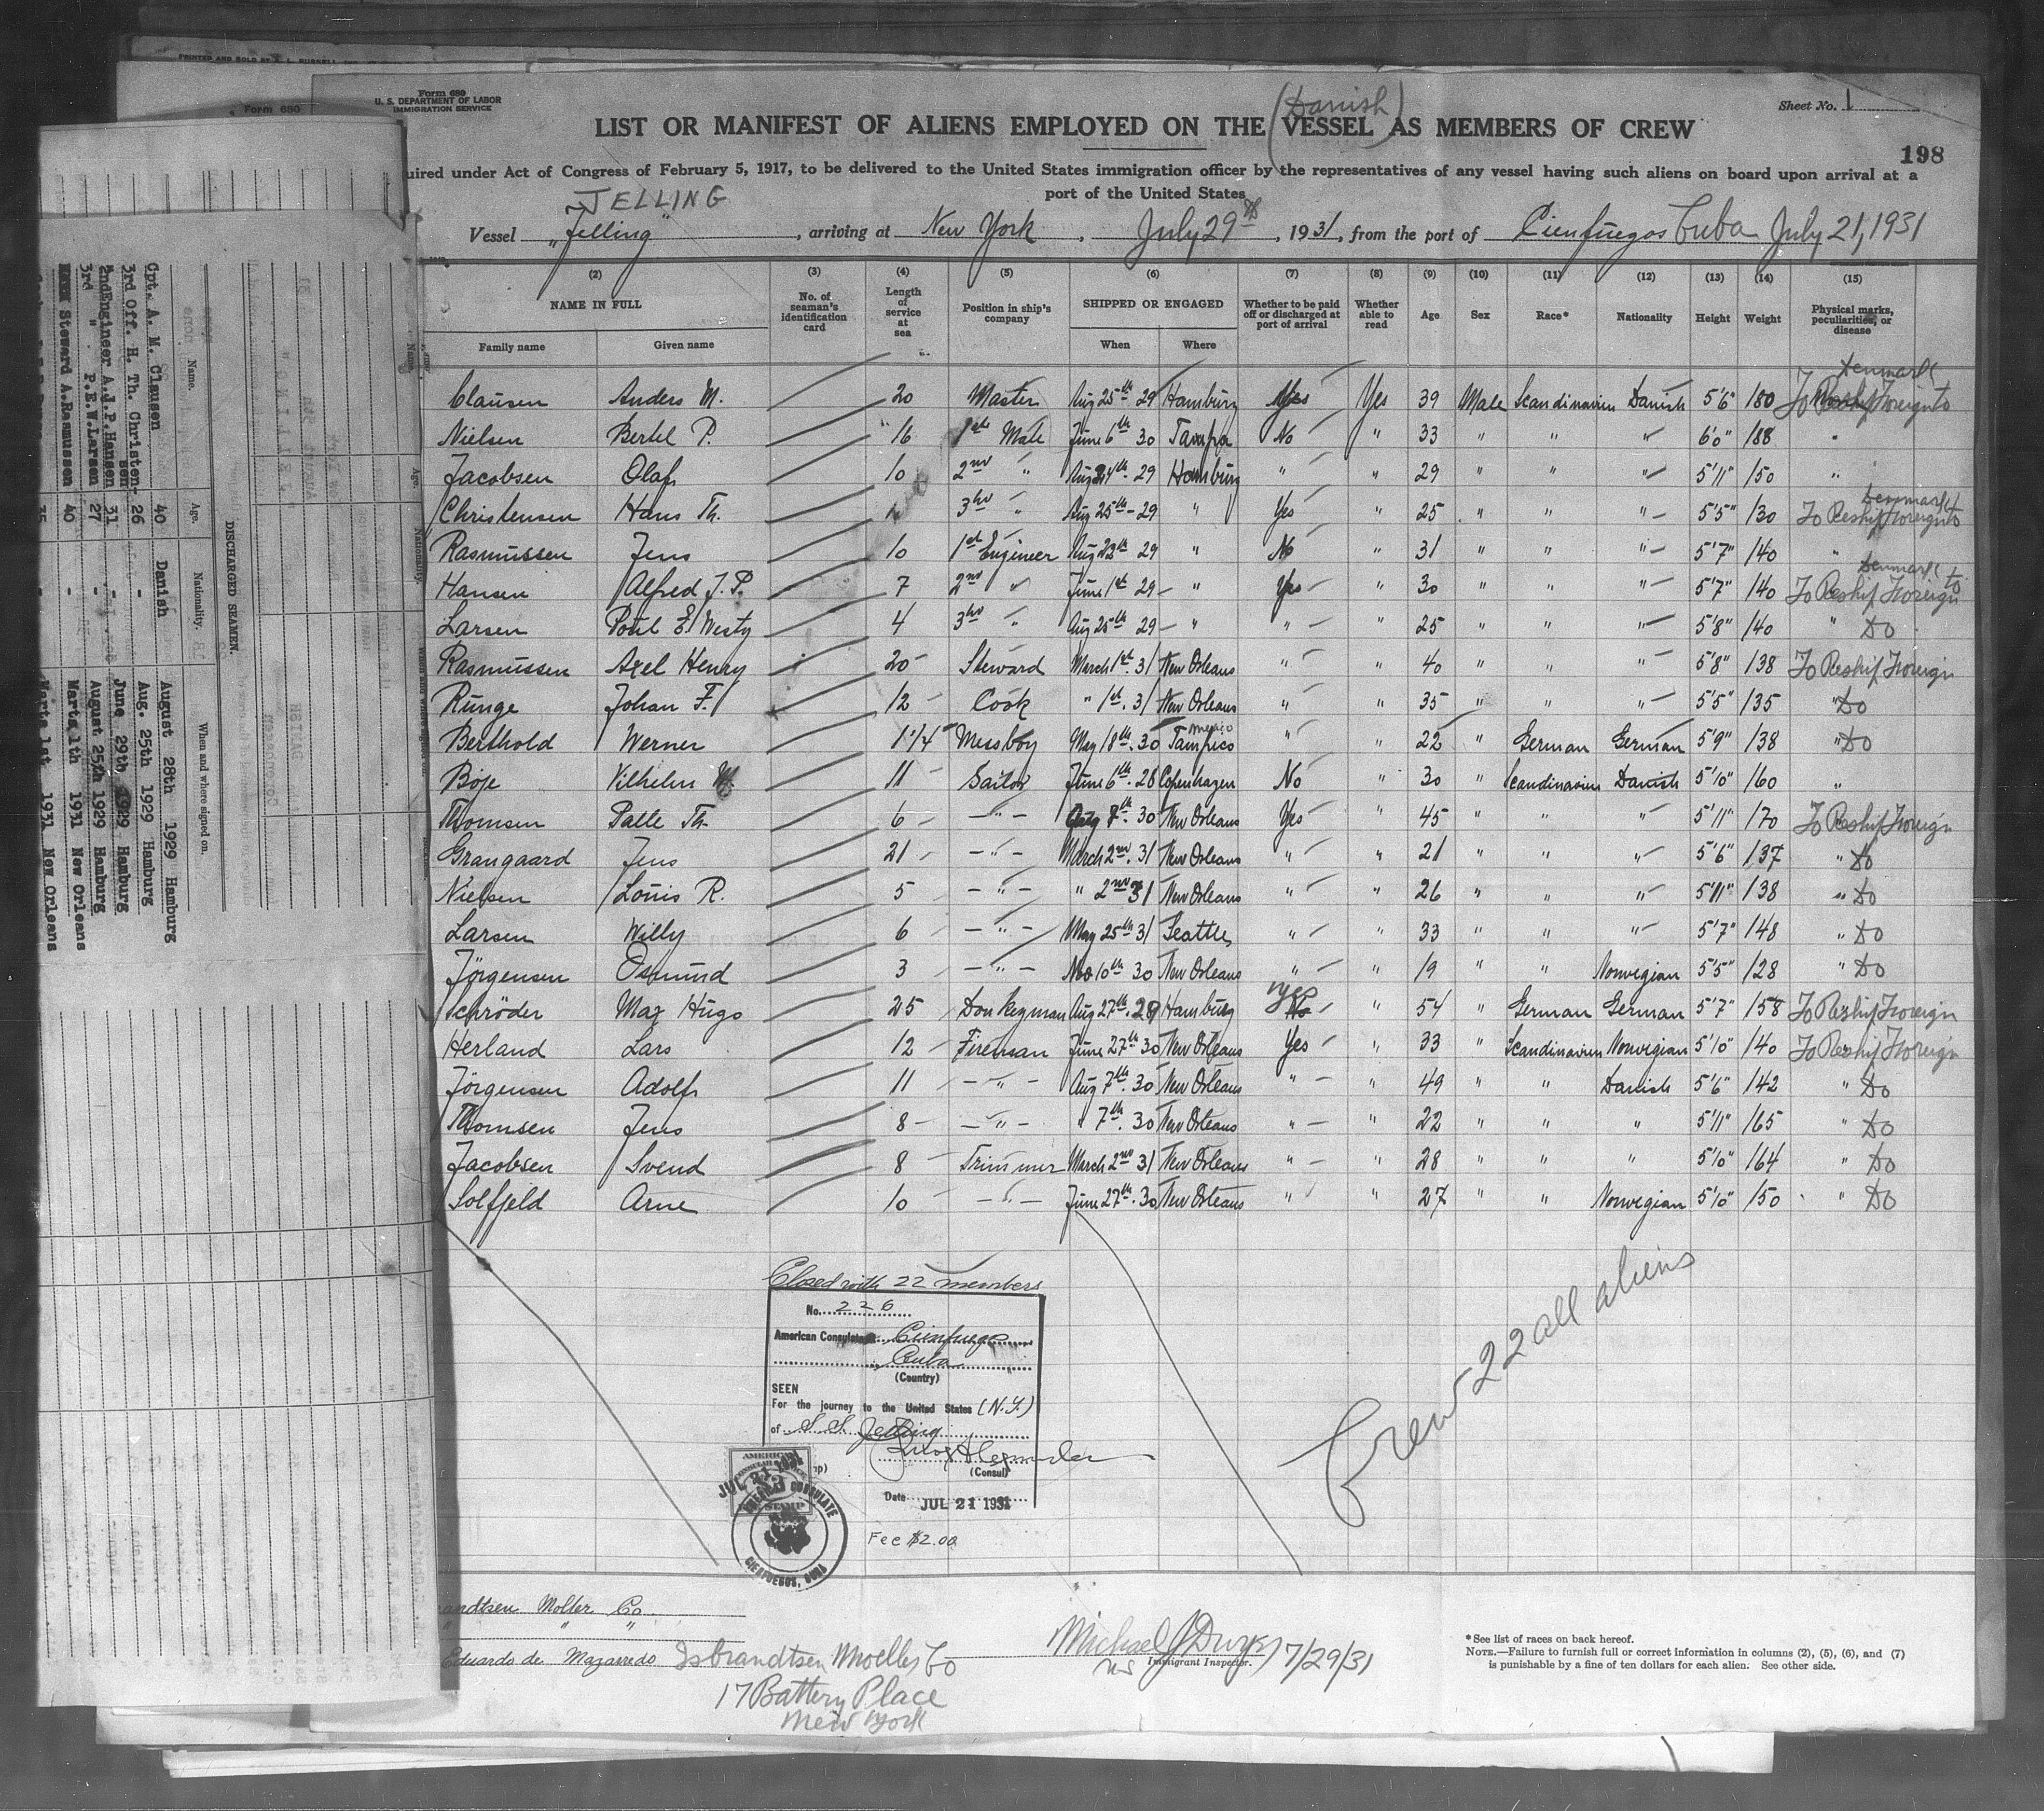 PRINTED AND SOLD BY
Form 680
Form 680
U. S. DEPARTMENT OF LABOR
IMMIGRATION SERVICE
Sheet No. 1
(Danish)
LIST OR MANIFEST OF ALIENS EMPLOYED ON THE VESSEL AS MEMBERS OF CREW
198
uired under Act of Congress of February 5, 1917, to be delivered to the United States immigration officer by the representatives of any vessel having such aliens on board upon arrival at a
port of the United States
JELLING
Vessel „Jelling", arriving at New York, July 29th, 1931, from the port of Cienfuegos Cuba July 21, 1931
(2) (3) (4) (5) (6) (7) (8) (9) (10) (11) (12) (13) (14) (15)
NAME IN FULL No. of seaman's identification card Length of service at sea Position in ship's company SHIPPED OR ENGAGED Whether to be paid off or discharged at port of arrival Whether able to read Age Sex Race* Nationality Height Weight Physical marks, peculiarities, or disease
Family name Given name When Where
Denmark
Clausen Anders M. 20 Master Aug 25th 29 Hamburg Yes Yes 39 Male Scandinavien Danish 5'6" 180 To Reship Foreign to
Nielsen Bertel P. 16 1st Mate June 6th 30 Tampa No " 33 " " " 6'0" 188 "
Jacobsen Olaf 10 2nd " Aug 24th - 29 Hamburg " " 29 " " " 5'11" 150 "
Denmark
Christensen Hans Th. 3rd " Aug 25th - 29 " Yes " 25 " " " 5'5" 130 To Reship Foreign to
Rasmussen Jens 10 1st Engineer Aug 23th 29 " No " 31 " " " 5'7" 140 "
Denmark
Hansen Alfred J. P. 7 2nd " June 1st 29 " Yes " 30 " " " 5'7" 140 To Reship Foreign to
Larsen Poul E. Westy 4 3rd " Aug 25th 29 " " " 25 " " " 5'8" 140 " Do
Rasmussen Axel Henry 20 Steward March 1st. 31 New Orleans " " 40 " " " 5'8" 138 To Reship Foreign
Runge Johan F. 12 Cook " 1st. 31 New Orleans " " 35 " " " 5'5" 135 " Do
Berthold Werner 1 1/4 Messboy May 18th. 30 Tampico Mexico " " 22 " German German 5'9" 138 " Do
Boje Vilhelm M. 11 Sailor June 6th. 28 Copenhagen No " 30 " Scandinavien Danish 5'10" 160 "
Thomsen Palle Th. 6 - " - Aug 7th. 30 New Orleans Yes " 45 " " " 5'11" 170 To Reship Foreign
Grangaard Jens 21 - " - March 2nd. 31 New Orleans " " 21 " " " 5'6" 137 " Do
Nielsen Louis R. 5 - " - " 2nd 31 New Orleans " " 26 " " " 5'11" 138 " Do
Larsen Willy 6 - " - May 25th 31 Seattle " " 33 " " " 5'7" 148 " Do
Jørgensen Osmund 3 - " - Nov 10th 30 New Orleans " " 19 " " Norwegian 5'5" 128 " Do
Schröder Max Hugo 25 Donkeyman Aug 27th. 28 Hamburg No yes " 54 " German German 5'7" 158 To Reship Foreign
Herland Lars 12 Fireman June 27th 30 New Orleans Yes " 33 " Scandinavien Norwegian 5'10" 140 To Reship Foreign
Jörgensen Adolf 11 - " - Aug 7th. 30 New Orleans " " 49 " " Danish 5'6" 142 " Do
Thomsen Jens 8 - " - " 7th. 30 New Orleans " " 22 " " " 5'11" 165 " Do
Jacobsen Svend 8 Trimmer March 2nd 31 New Orleans " " 28 " " " 5'10" 164 " Do
Solfjeld Arne 10 - " - June 27th. 30 New Orleans " " 27 " " Norwegian 5'10" 150 " Do
Closed with 22 members
No. 226
American Consulate Cienfuegos
Cuba
(Country)
SEEN
For the journey to the United States (N.Y.)
of S. S. Jelling
(Consul)
Date JUL 21 1931
Fee $2.00
AMERICAN
JUL 21 1931
AMERICAN CONSULATE
CIENFUEGOS, CUBA
Crew 22 all aliens
andtsen Moller Co.
" " "
Eduardo de Mazarredo
Isbrandtsen Moeller Co
17 Battery Place
New York
Michael J Durkz 7/29/31
Immigrant Inspector.
*See list of races on back hereof.
NOTE.—Failure to furnish full or correct information in columns (2), (5), (6), and (7)
is punishable by a fine of ten dollars for each alien. See other side.
DISCHARGED SEAMEN.
Name. Age. Nationality. When and where signed on.
Cpt. A. M. Clausen 40 Danish August 28th 1929 Hamburg
3rd Off. H. Th. Christensen 26 - Aug. 25th 1929 Hamburg
2nd Engineer A.J.P.Hansen 31 - June 29th 1929 Hamburg
3rd " P.E.W.Larsen 27 - August 25th 1929 Hamburg
Steward A.Rasmussen 40 - Marts 1th 1931 New Orleans
35 - Marts 1st 1931 New Orleans